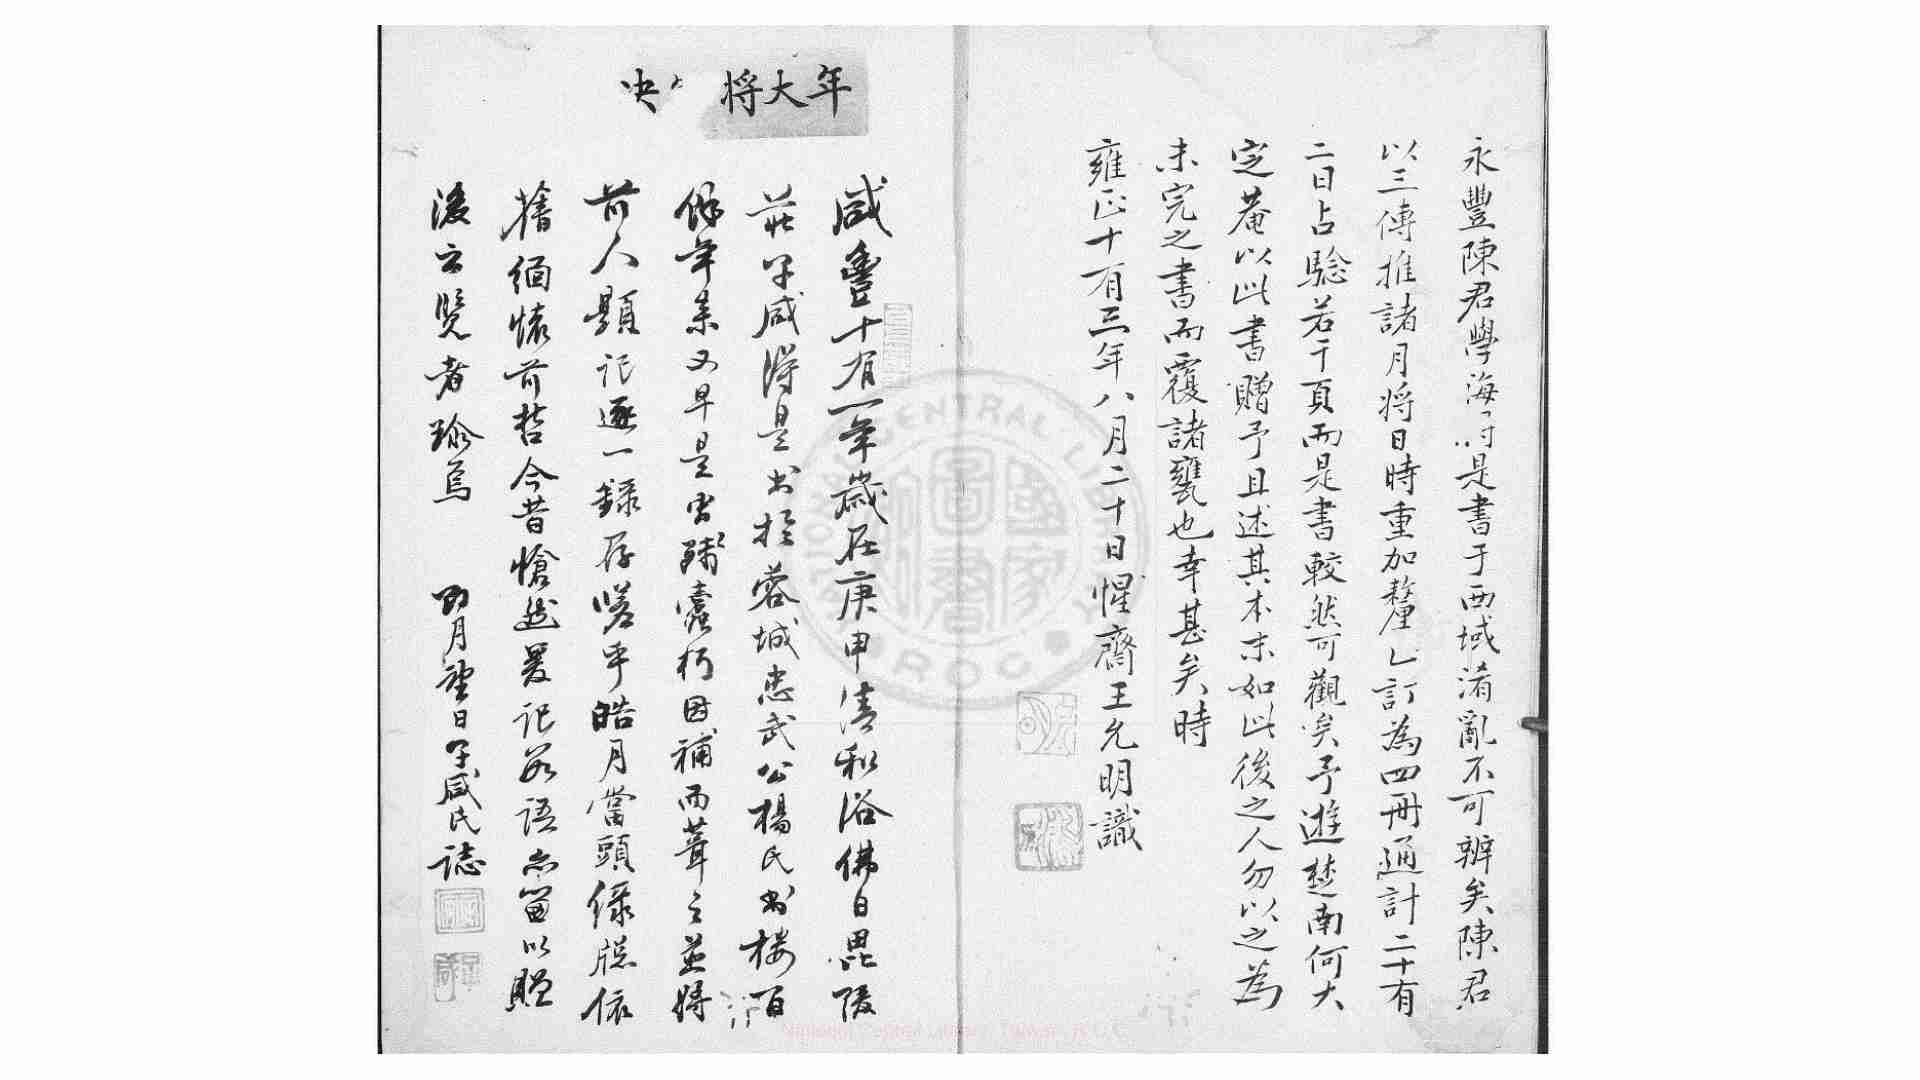 永豐陳君學海 是書于西域淆亂不可辨矣陳君
以三傳推諸月將日時重加釐乙訂為四冊通計二十有
二日占驗若干頁而是書較然可觀矣予遊楚南何大
定菴以此書贈予且述其本末如此後之人勿以之為
未完之書而覆諸甕也幸甚矣時
雍正十有三年八月二十日惺齋王允明識
年大將 訣
咸豐十有一年歲在庚申清和浴佛日毘陵
莊子咸得是書於蓉城忠武公楊氏書樓百
餘年來 是書殘蠹朽因補而葺之並將
前人題記逐一錄存嗟乎皓月當頭綠 依
舊緬懷前哲今昔愴 爰記數語亦留以貽
後之覽者 焉 月望日子咸氏誌
NATIONAL CENTRAL LIBRARY
R O C
國家圖書館
National Central Library, Taiwan, R.O.C